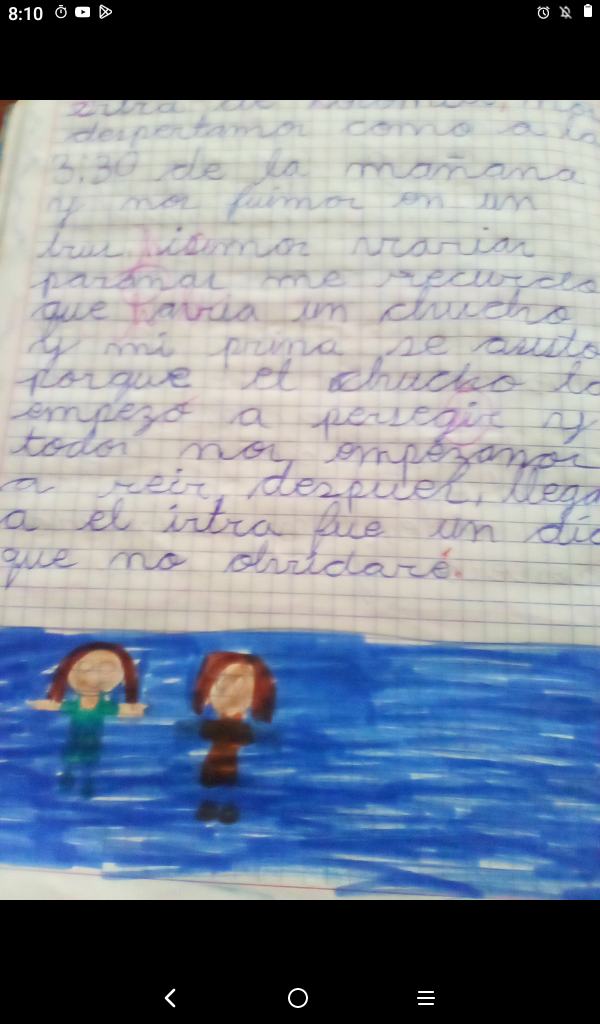 8:10
despertamos como a la
3:30 de la mañana
y nos fuimos en un
bus. isimos varias
paradas me recuerdo
que havia un chucho
y mi prima se asusto
porque el chucho la
empezó a persegir y
todos nos empezamos
a reir, despues, llega
a el irtra fue un día
que no olvidaré.